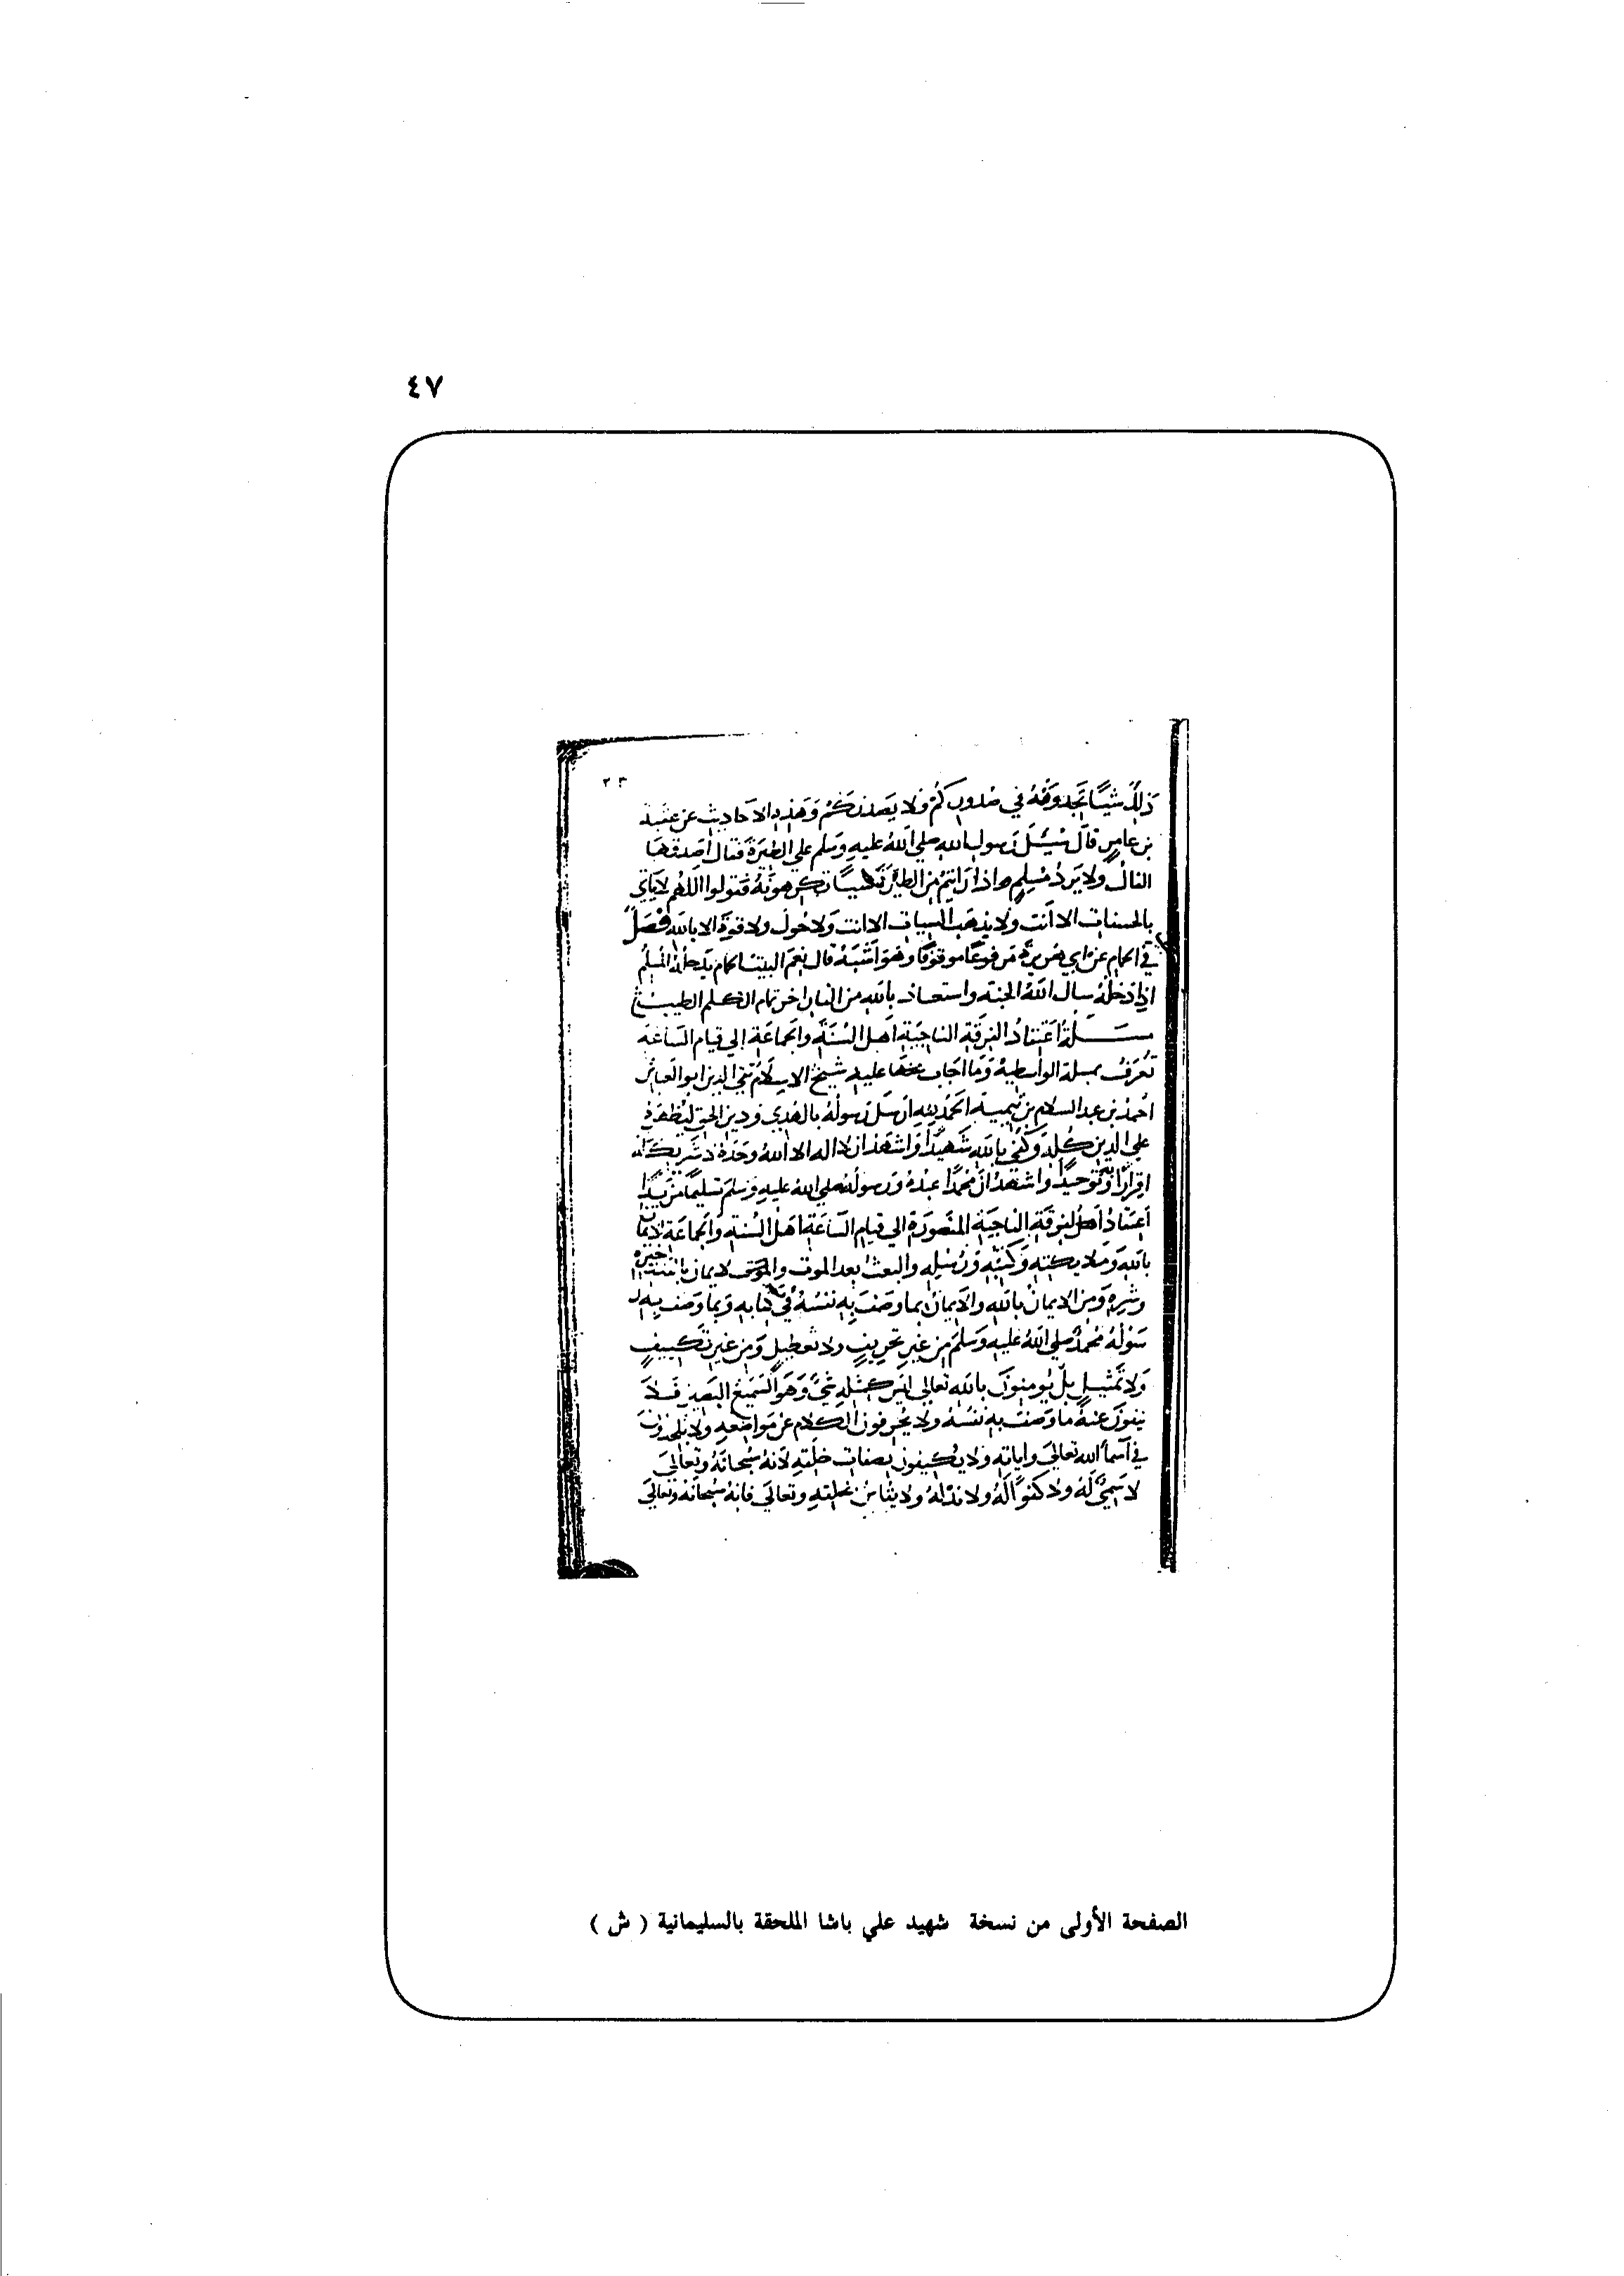 ٤٧
٢٣
ذلك شيئا تجدونه في صدوركم فلا يصدنكم وهذه الاحاديث عن عقبة
بن عامر قال سئل رسول الله صلي الله عليه وسلم علي الطيرة فقال اصدقها
الفال ولا يرد مسلم واذا رايتم من الطير شيا تكرهونه فقولوا اللهم لا ياتي
بالحسنات الا انت ولا يذهب السيات الا انت ولا حول ولا قوة الا بالله فصل
في الحمام عن ابي هريرة مرفوعا موقوفا وهو اشبه قال نعم البيت الحمام يدخله المسلم
اذا دخله سال الله الجنة واستعاذ بالله من النار اخر تمام الكلم الطيب
مسلة اعتقاد الفرقة الناجية اهل السنة والجماعة الي قيام الساعة
تعرف بمسلة الواسطية وما اجاب عنها عليه شيخ الاسلام تقي الدين ابو العباس
احمد بن عبد السلام بن تيمية الحمد لله ارسل رسوله بالهدي ودين الحق ليظهره
علي الدين كله وكفي بالله شهيدا واشهد ان لا اله الا الله وحده لا شريك له
اقرارا وتوحيدا واشهد ان محمدا عبده ورسوله صلي الله عليه وسلم تسليما مزيدا
اعتقاد اهل الفرقة الناجية المنصورة الي قيام الساعة اهل السنة والجماعة الايمان
بالله وملايكته وكتبه ورسله والبعث بعد الموت والايمان بالقدر خيره
وشره ومن الايمان بالله والايمان بما وصف به نفسه في كتابه وبما وصف به ر
سوله محمد صلي الله عليه وسلم من غير تحريف ولا تعطيل ومن غير تكييف
ولا تمثيل بل يومنون بالله تعالي ليس كمثله شئ وهو السميع البصير فلا
ينفون عنه ما وصف به نفسه ولا يحرفون الكلام عن مواضعه ولا يلحدون
في اسما الله تعالي واياته ولا يكيفون بصفات خلقه لانه سبحانه وتعالي
لا سمي له ولا كفوا له ولا ند له ولا يقاس بخلقه وتعالي فانه سبحانه وتعالي
الصفحة الأولى من نسخة شهيد علي باشا الملحقة بالسليمانية ( ش )